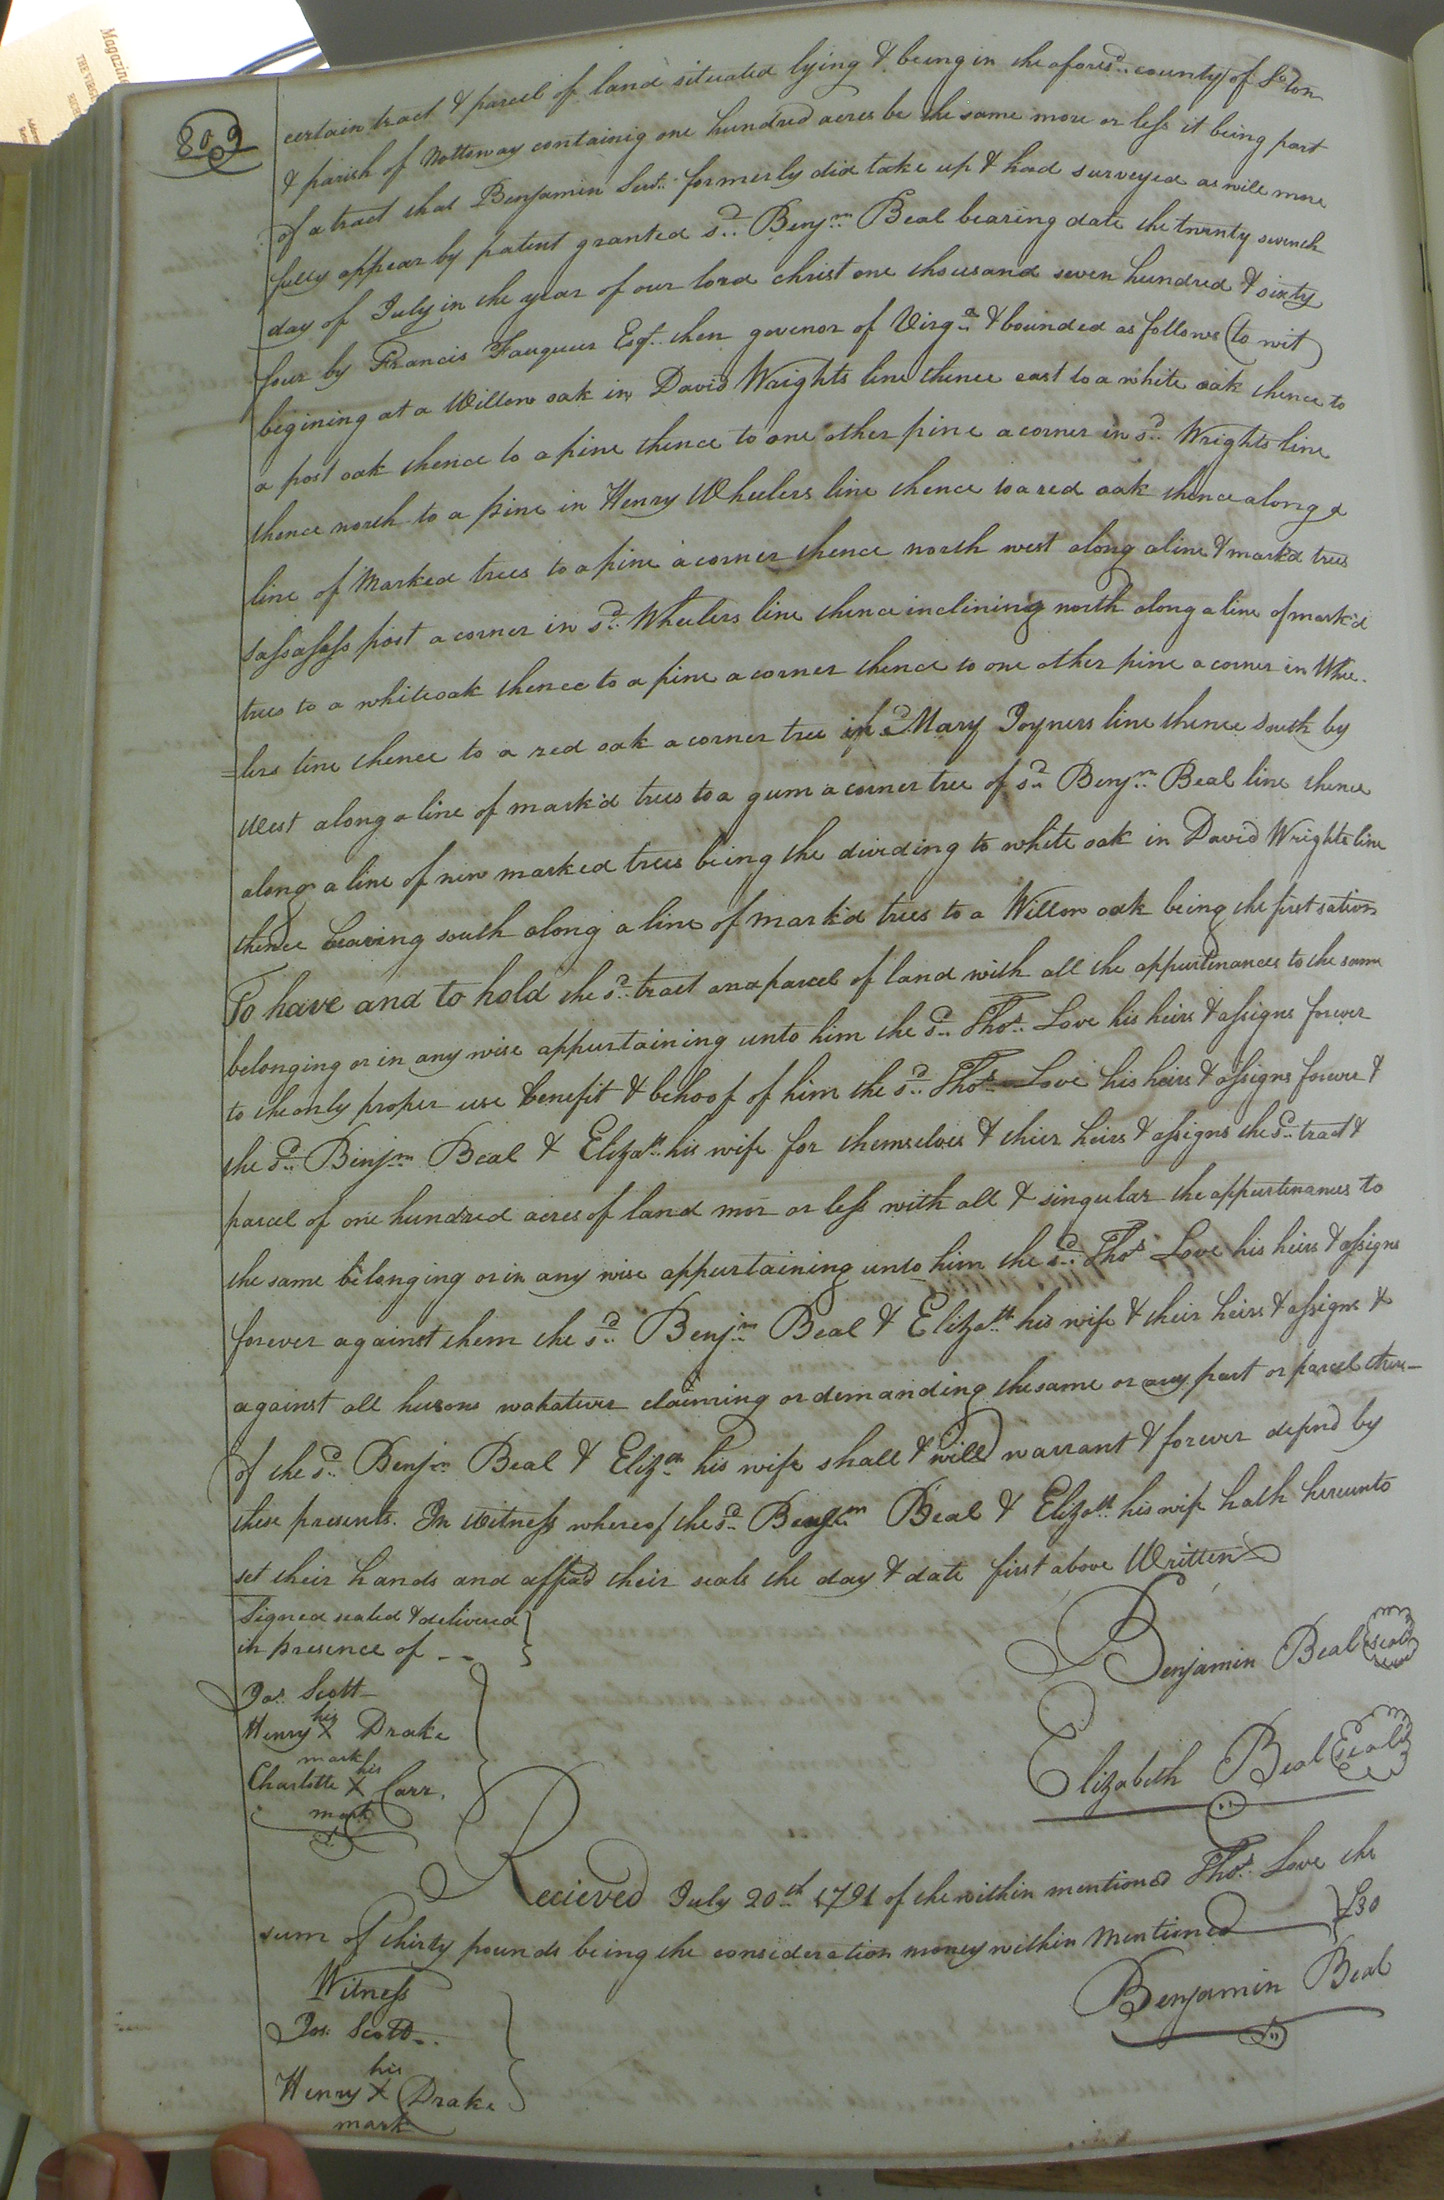 Magazine
THE VIR
809
certain tract & parcel of land situated lying & being in the aforesd. county of So.ton
& parish of Nottoway containig one hundred acres be the same more or less it being part
of a tract that Benjamin formerly did take up & had surveyed as will more
fully appear by patent granted sd. Benjm. Beal bearing date the twenty seventh
day of July in the year of our lord christ one thousand seven hundred & sixty
four by Francis Fauquier Esqr. then govenor of Virga. & bounded as follows (to wit)
begining at a Willow oak in David Wrights line thence east to a white oak thence to
a post oak thence to a pine thence to one other pine a corner in sd. Wrights line
thence north to a pine in Henry Wheelers line thence to a red oak thence along a
line of Marked trees to a pine a corner thence north west along a line & mark'd trees
sassafass post a corner in sd. Wheelers line thence inclining north along a line of mark'd
trees to a white oak thence to a pine a corner thence to one other pine a corner in Whee-
=lers line thence to a red oak a corner tree in sd. Mary Joyners line thence South by
West along a line of mark'd trees to a gum a corner tree of sd. Benjm. Beal line thence
along a line of new marked trees being the dividing to white oak in David Wrights line
thence bearing south along a line of mark'd trees to a Willow oak being the first sation
To have and to hold the sd. tract and parcel of land with all the appurtenances to the same
belonging or in any wise appurtaining unto him the sd. Thos. Love his heirs & assigns forever
to the only proper use benefit & behoof of him the sd. Thos. Love his heirs & assigns forever &
the sd. Benjm. Beal & Elizath. his wife for themselves & their heirs & assigns the sd. tract &
parcel of one hundred acres of land mor or less with all & singular the appurtenances to
the same belonging or in any wise appurtaining unto him the sd. Thos. Love his heirs & assigns
forever against them the sd. Benjm. Beal & Elizath. his wife & their heirs & assigns &
against all persons whatever claiming or demanding the same or any part or parcel there-
of the sd. Benjm. Beal & Elizath his wife shall & will warrant & forever defend by
these presents. In Witness whereof the sd. Benjm. Beal & Elizath. his wife hath hereunto
set their hands and affixd their seals the day & date first above Written
Signed sealed & delivered
in presence of --
Benjamin Beal (seal)
Jas. Scott
Henry his X Drake
mark
Elizabeth Beal (Seal)
Charlotte his X Carr.
mark
Recieved July 20th. 1791 of the within mentioned Thos. Love the
sum of thirty pounds being the consideration money within mentioned £30
Witness
Benjamin Beal
Jas. Scott
his
Henry X Drake
mark